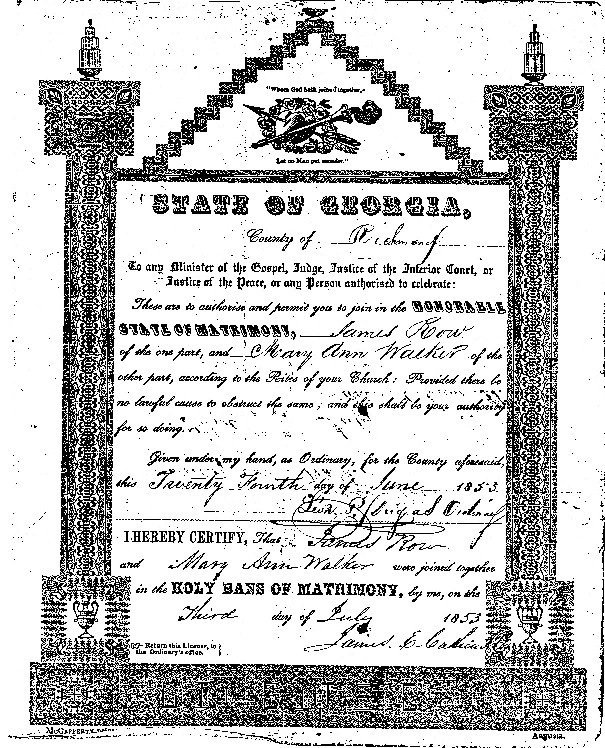 "Whom God hath joined together,
Let no Man put asunder."
STATE OF GEORGIA,
County of Richmond
To any Minister of the Gospel, Judge, Justice of the Inferior Court, or
Justice of the Peace, or any Person authorised to celebrate:
These are to authorise and permit you to join in the HONORABLE
STATE OF MATRIMONY, James Row
of the one part, and Mary Ann Walker of the
other part, according to the Rites of your Church: Provided there be
no lawful cause to obstruct the same; and this shall be your authority
for so doing.
Given under my hand, as Ordinary, for the County aforesaid,
this Twenty Fourth day of June 1853
Dugas Ordinary
I HEREBY CERTIFY, That James Row
and Mary Ann Walker were joined together
in the HOLY BANS OF MATRIMONY, by me, on the
Third day of July 1853
James E.
Return this License, to
the Ordinary's office.
McCAFFERTY,
Augusta.